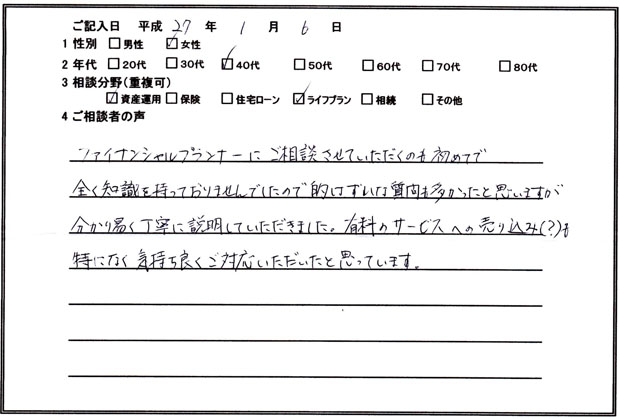 ご記入日 平成 27 年 1 月 6 日
1 性別 □男性 ☑女性
2 年代 □20代 □30代 ☑40代 □50代 □60代 □70代 □80代
3 相談分野(重複可)
☑資産運用 □保険 □住宅ローン ☑ライフプラン □相続 □その他
4 ご相談者の声
ファイナンシャルプランナーにご相談させていただくのも初めてで
全く知識を持っておりませんでしたので的はずれな質問も多かったと思いますが
分かり易く丁寧に説明していただきました。有料のサービスへの売り込み(?)も
特になく気持ち良くご対応いただいたと思っています。